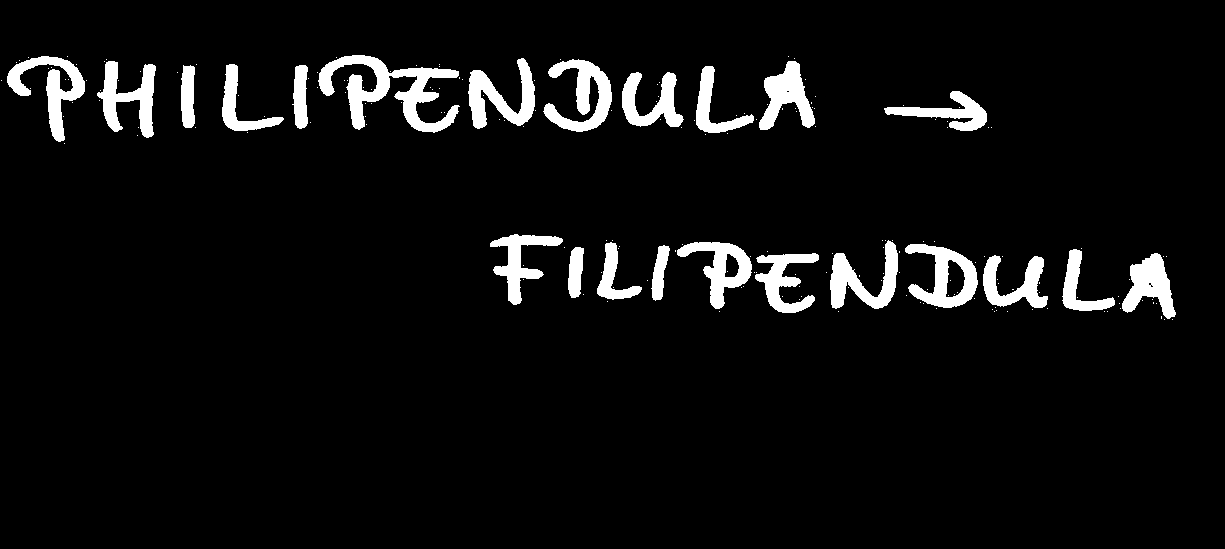 PHILIPENDULA →
FILIPENDULA